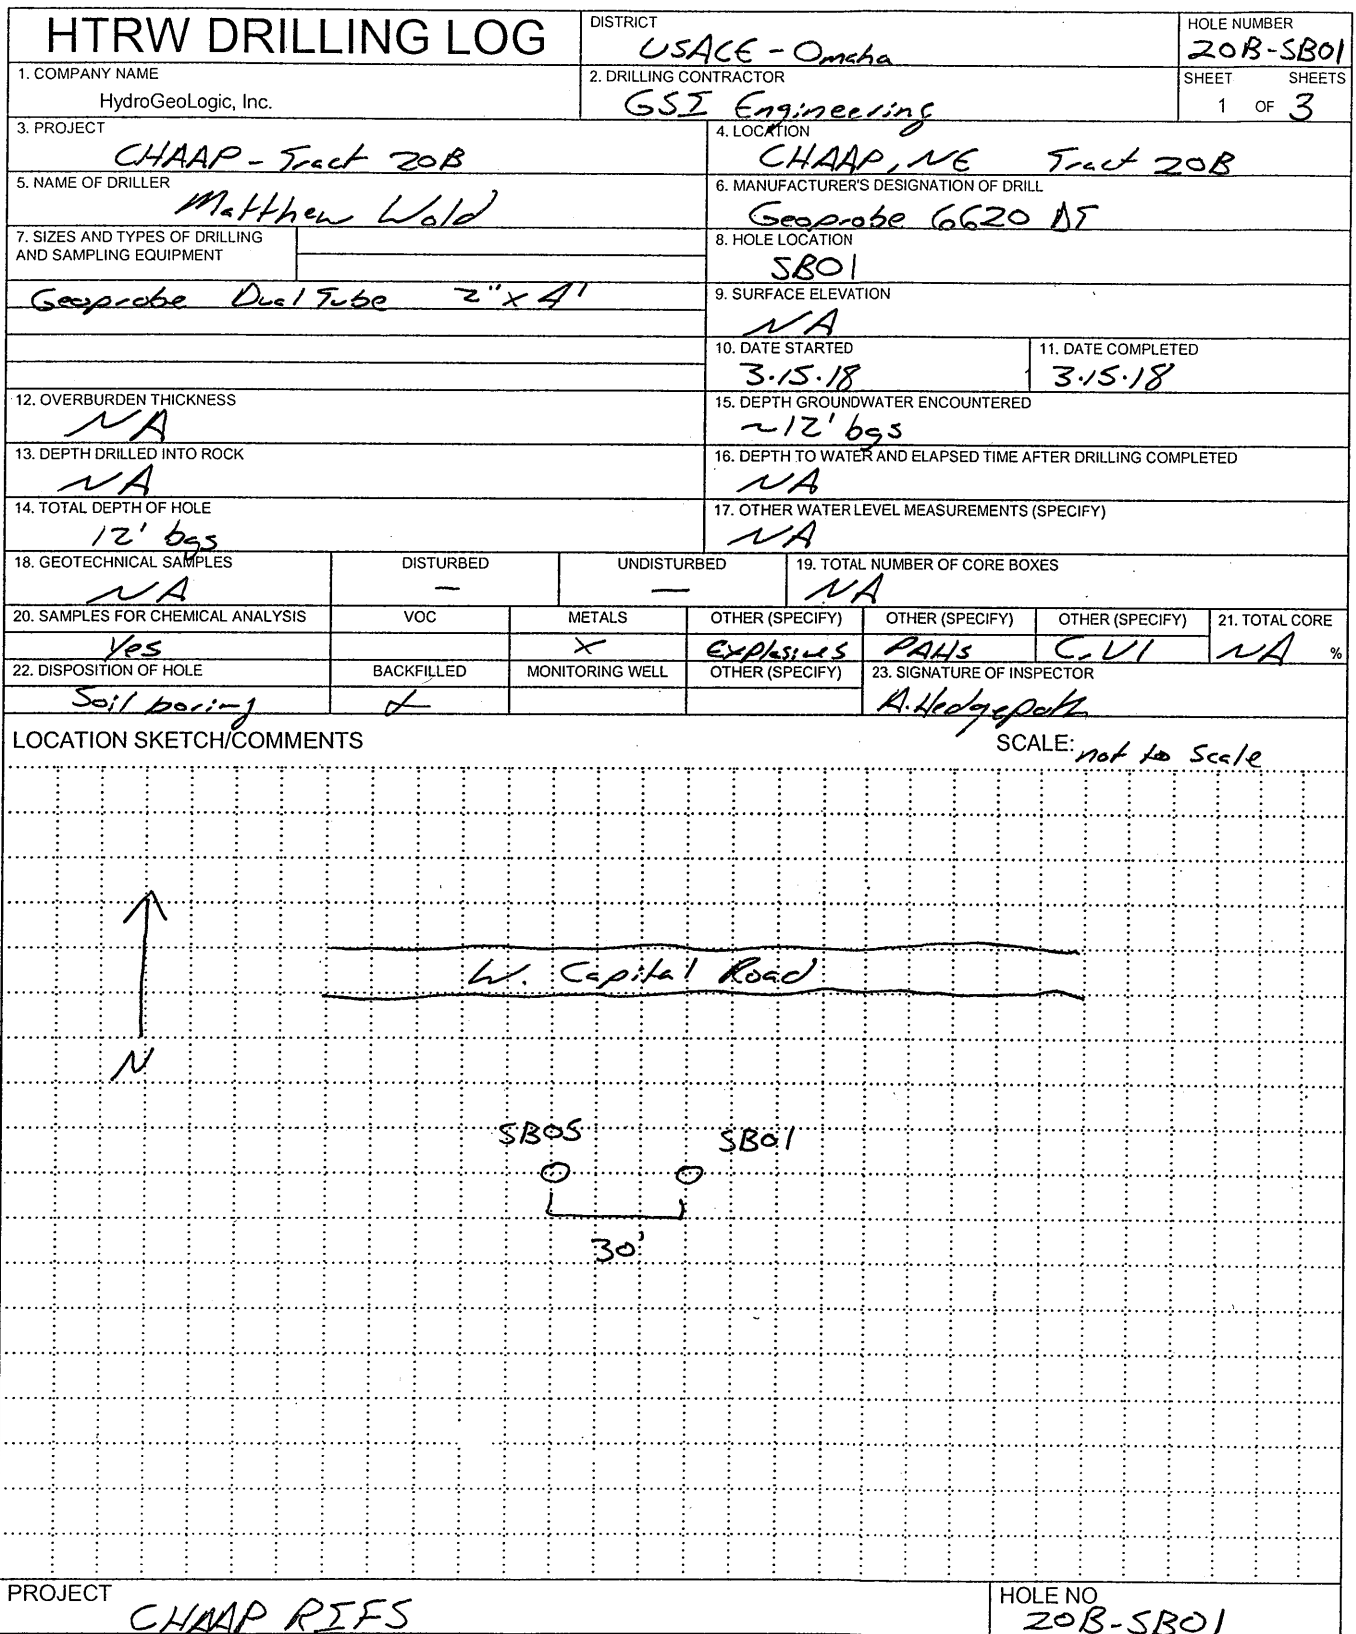 HTRW DRILLING LOG
DISTRICT
USACE - Omaha
HOLE NUMBER
20B-SB01
1. COMPANY NAME
HydroGeoLogic, Inc.
2. DRILLING CONTRACTOR
GSI Engineering
SHEET SHEETS
1 OF 3
3. PROJECT
CHAAP - Tract 20B
4. LOCATION
CHAAP, NE Tract 20B
5. NAME OF DRILLER
Matthew Wold
6. MANUFACTURER'S DESIGNATION OF DRILL
Geoprobe 6620 DT
7. SIZES AND TYPES OF DRILLING
AND SAMPLING EQUIPMENT
8. HOLE LOCATION
SB01
Geoprobe Dual Tube 2" x 4'
9. SURFACE ELEVATION
NA
10. DATE STARTED
3.15.18
11. DATE COMPLETED
3.15.18
12. OVERBURDEN THICKNESS
NA
15. DEPTH GROUNDWATER ENCOUNTERED
~12' bgs
13. DEPTH DRILLED INTO ROCK
NA
16. DEPTH TO WATER AND ELAPSED TIME AFTER DRILLING COMPLETED
NA
14. TOTAL DEPTH OF HOLE
12' bgs
17. OTHER WATER LEVEL MEASUREMENTS (SPECIFY)
NA
18. GEOTECHNICAL SAMPLES DISTURBED UNDISTURBED 19. TOTAL NUMBER OF CORE BOXES
NA — — NA
20. SAMPLES FOR CHEMICAL ANALYSIS VOC METALS OTHER (SPECIFY) OTHER (SPECIFY) OTHER (SPECIFY) 21. TOTAL CORE
Yes X Explosives PAHs Cr VI NA %
22. DISPOSITION OF HOLE BACKFILLED MONITORING WELL OTHER (SPECIFY) 23. SIGNATURE OF INSPECTOR
Soil boring X A. Hedgepath
LOCATION SKETCH/COMMENTS SCALE: not to scale
W. Capital Road
N
SB05 SB01
30'
PROJECT
CHAAP RIFS
HOLE NO
20B-SB01